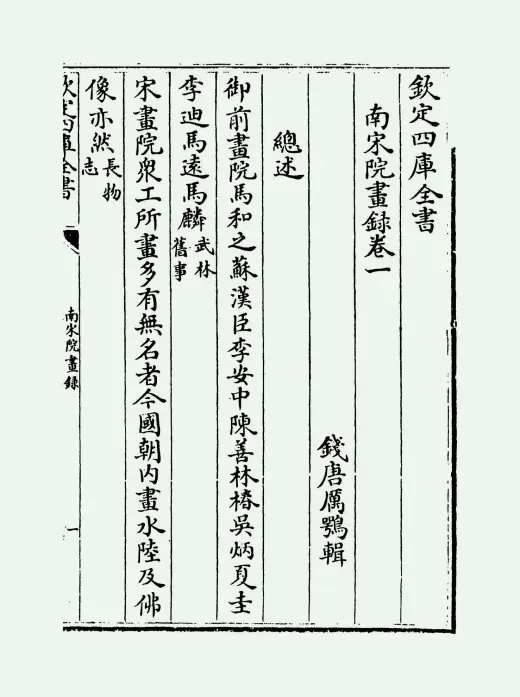 欽定四庫全書
南宋院畫録卷一
錢唐厲鶚輯
總述
御前畫院馬和之蘇漢臣李安中陳善林椿吳炳夏圭
李迪馬遠馬麟武林舊事
宋畫院衆工所畫多有無名者今國朝内畫水陸及佛
像亦然長物志
欽定四庫全書
南宋院畫録
一